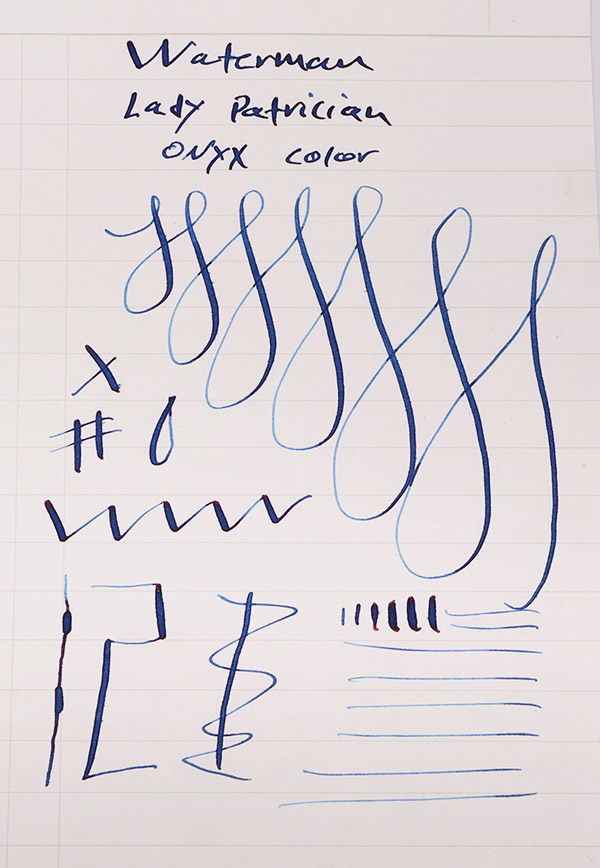 Waterman
Lady Patrician
ONYX color
x
# 0